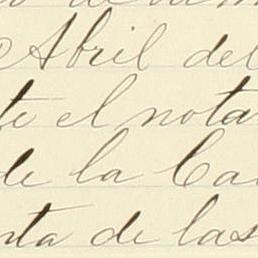 Abril del
te el nota
de la Ca
nta de las